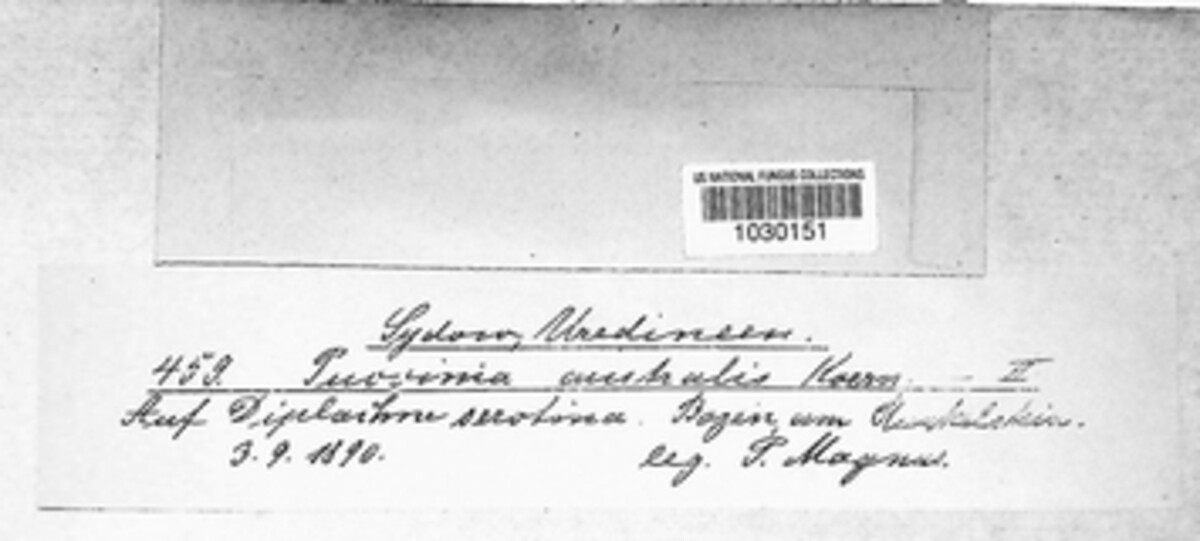 US NATIONAL FUNGUS COLLECTIONS
1030151
Sydow, Uredineen.
459. Puccinia australis Koern. – II
Auf Diplachne serotina. Bozen, am
3. 9. 1890. leg. P. Magnus.